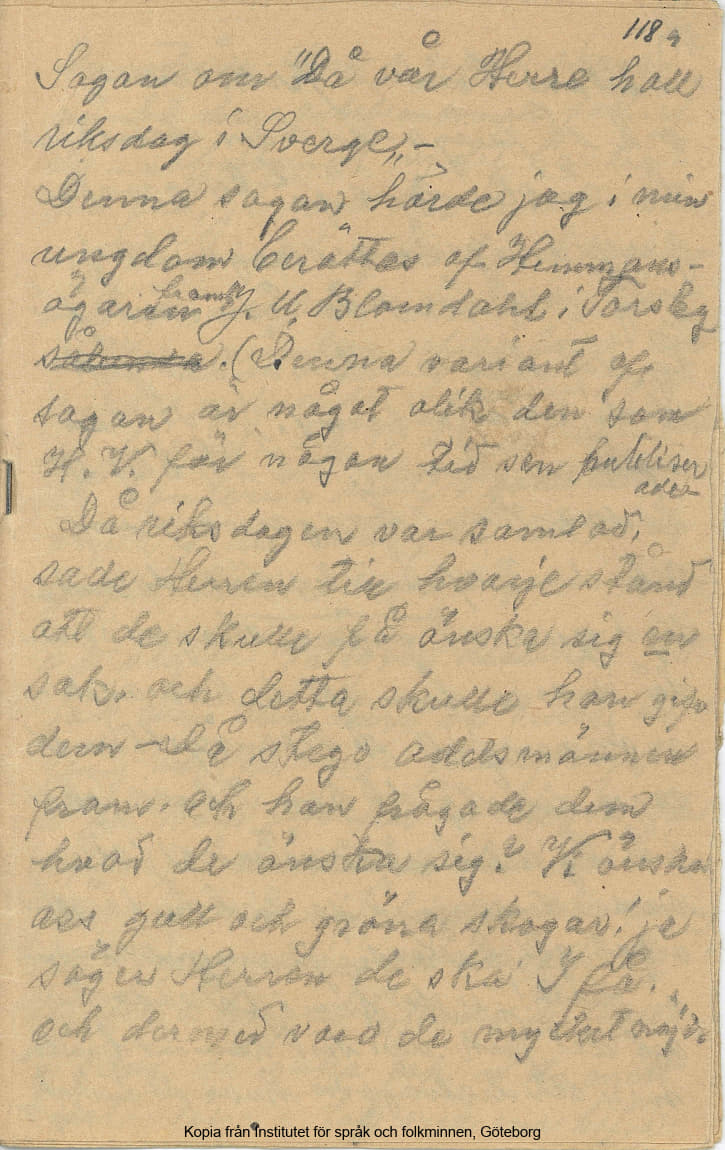 118 a
Sagan om "Då vår Herre höll
riksdag i Sverge„ –
Denna sagan hörde jag i min
ungdom berättas af Hemmans-
ägaren framl. J. U. Blomdahl i Torsby
såhunda. (Denna variant af
sagan är något olik den som
H. V. för någon tid sen publiser
ades
Då riksdagen var samlad,
sade Herren till hvarje stånd
att de skulle få önska sig en
sak, och detta skulle han gifva
dem – Då stego adelsmännen
fram. och han frågade dem
hvad de önska sig? Vi önska
oss gull och gröna skogar! ja
säger Herren de ska I få.
och dermed voro de mycket nöjda
Kopia från Institutet för språk och folkminnen, Göteborg